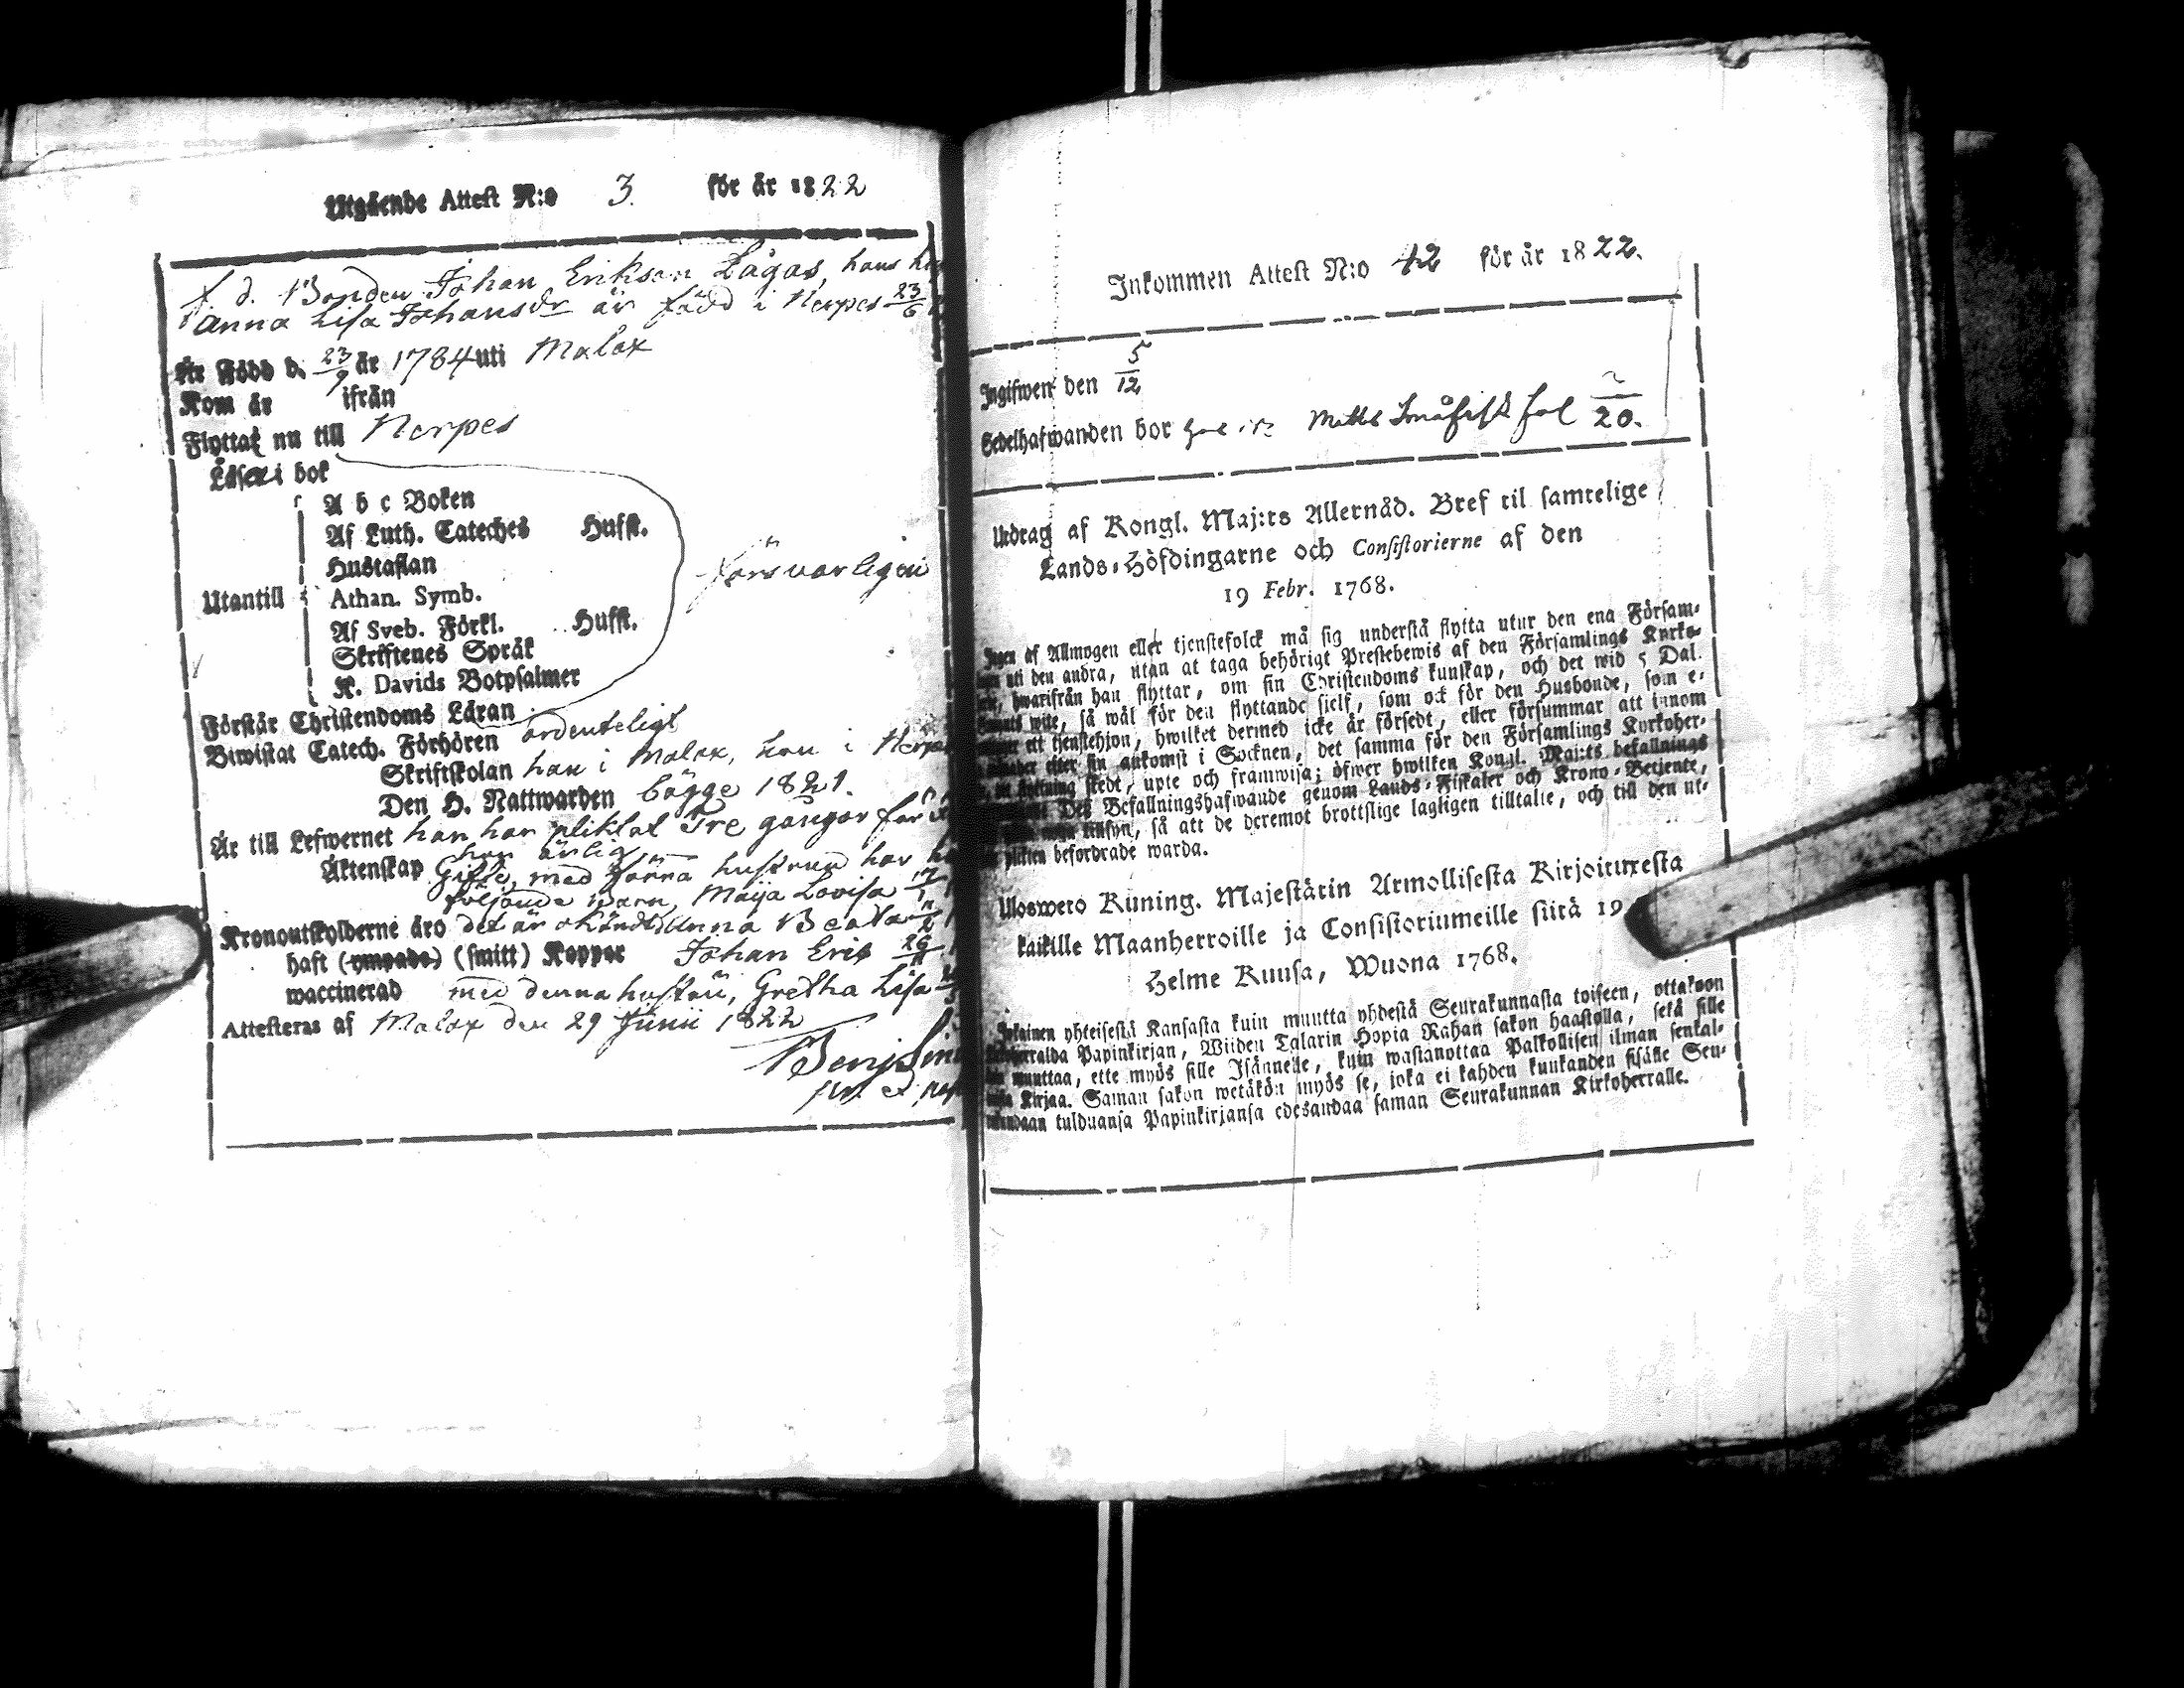 Utgående Attest N:o 3. för år 1822
f. d. Bonden Johan Erikson Lågas, hans
Anna Lisa Johansdr är född i Nerpes 23/6
Är Född d. 23/9 år 1784 uti Malax
Kom år ifrån
Flyttat nu till Nerpes
Läser i bok
A b c Boken
Af Luth. Cateches Hufst.
Hustaflan
försvarligen
Utantill Athan. Symb.
Af Sveb. Förkl. Hufst.
Skriftenes Språk
K. Davids Botpsalmer
Förstår Christendoms Läran
Biwistat Catech. Förhören ordenteligt
Skriftskolan han i Malax, hon i
Den H. Nattwarden bägge 1821.
Är till Lefwernet han har pliktat Tre gångor för
hon ärlig
Äktenskap Gifte, med förra hustrun har
följande barn, Maija Lovisa 17/1
Kronoutskylderne äro det är okändt Anna Beata
haft (ympade) (smitt) Koppor Johan Eric 26
waccinerad med denna hustru, Gretha Lisa
Attesteras af Malax den 29 Junii 1822
Inkommen Attest N:o 42 för år 1822.
Ingifwen den 5/12
Sedelhafwanden bor fol 20.
Utdrag af Kongl. Maj:ts Allernåd. Bref til samtelige
Lands-Höfdingarne och Consistorierne af den
19 Febr. 1768.
Ingen af Allmogen eller tjenstefolck må sig understå flytta utur den ena Försam-
uti den andra, utan at taga behörigt Prestebewis af den Församlings Kyrko-
hwarifrån han flyttar, om sin Christendoms kunskap, och det wid 5 Dal.
wite, så wäl för den flyttande sielf, som ock för den Husbonde, som e-
ett tjenstehjon, hwilket dermed icke är försedt, eller försummar att innom
efter sin ankomst i Socknen, det samma för den Församlings Kyrkoher-
flyttning skedt, upte och framwisa; öfwer hwilken Kongl. Maj:ts befallnings
Befallningshafwande genom Lands-Fiskaler och Krono-Betjente,
så att de deremot brottslige lagligen tilltalte, och till den ut-
plickten befordrade warda.
Uloswero Kuning. Majestätin Armollisesta Kirjoituxesta
kaikille Maanherroille ja Consistoriumeille siitä 19
Helme Kuusa, Wuona 1768.
Jokainen yhteisestä Kansasta kuin muutta yhdestä Seurakunnasta toiseen, ottakoon
Papinkirjan, Wiiden Talarin Hopia Rahan sakon haastolla, sekä sille
muuttaa, ette myös sille Isännelle, kuin wastanottaa Palkollisen ilman senkal-
Kirjaa. Saman sakon wetäkön myös se, joka ei kahden kuukanden sisälle Seu-
tulduansa Papinkirjansa edesandaa saman Seurakunnan Kirkoherralle.